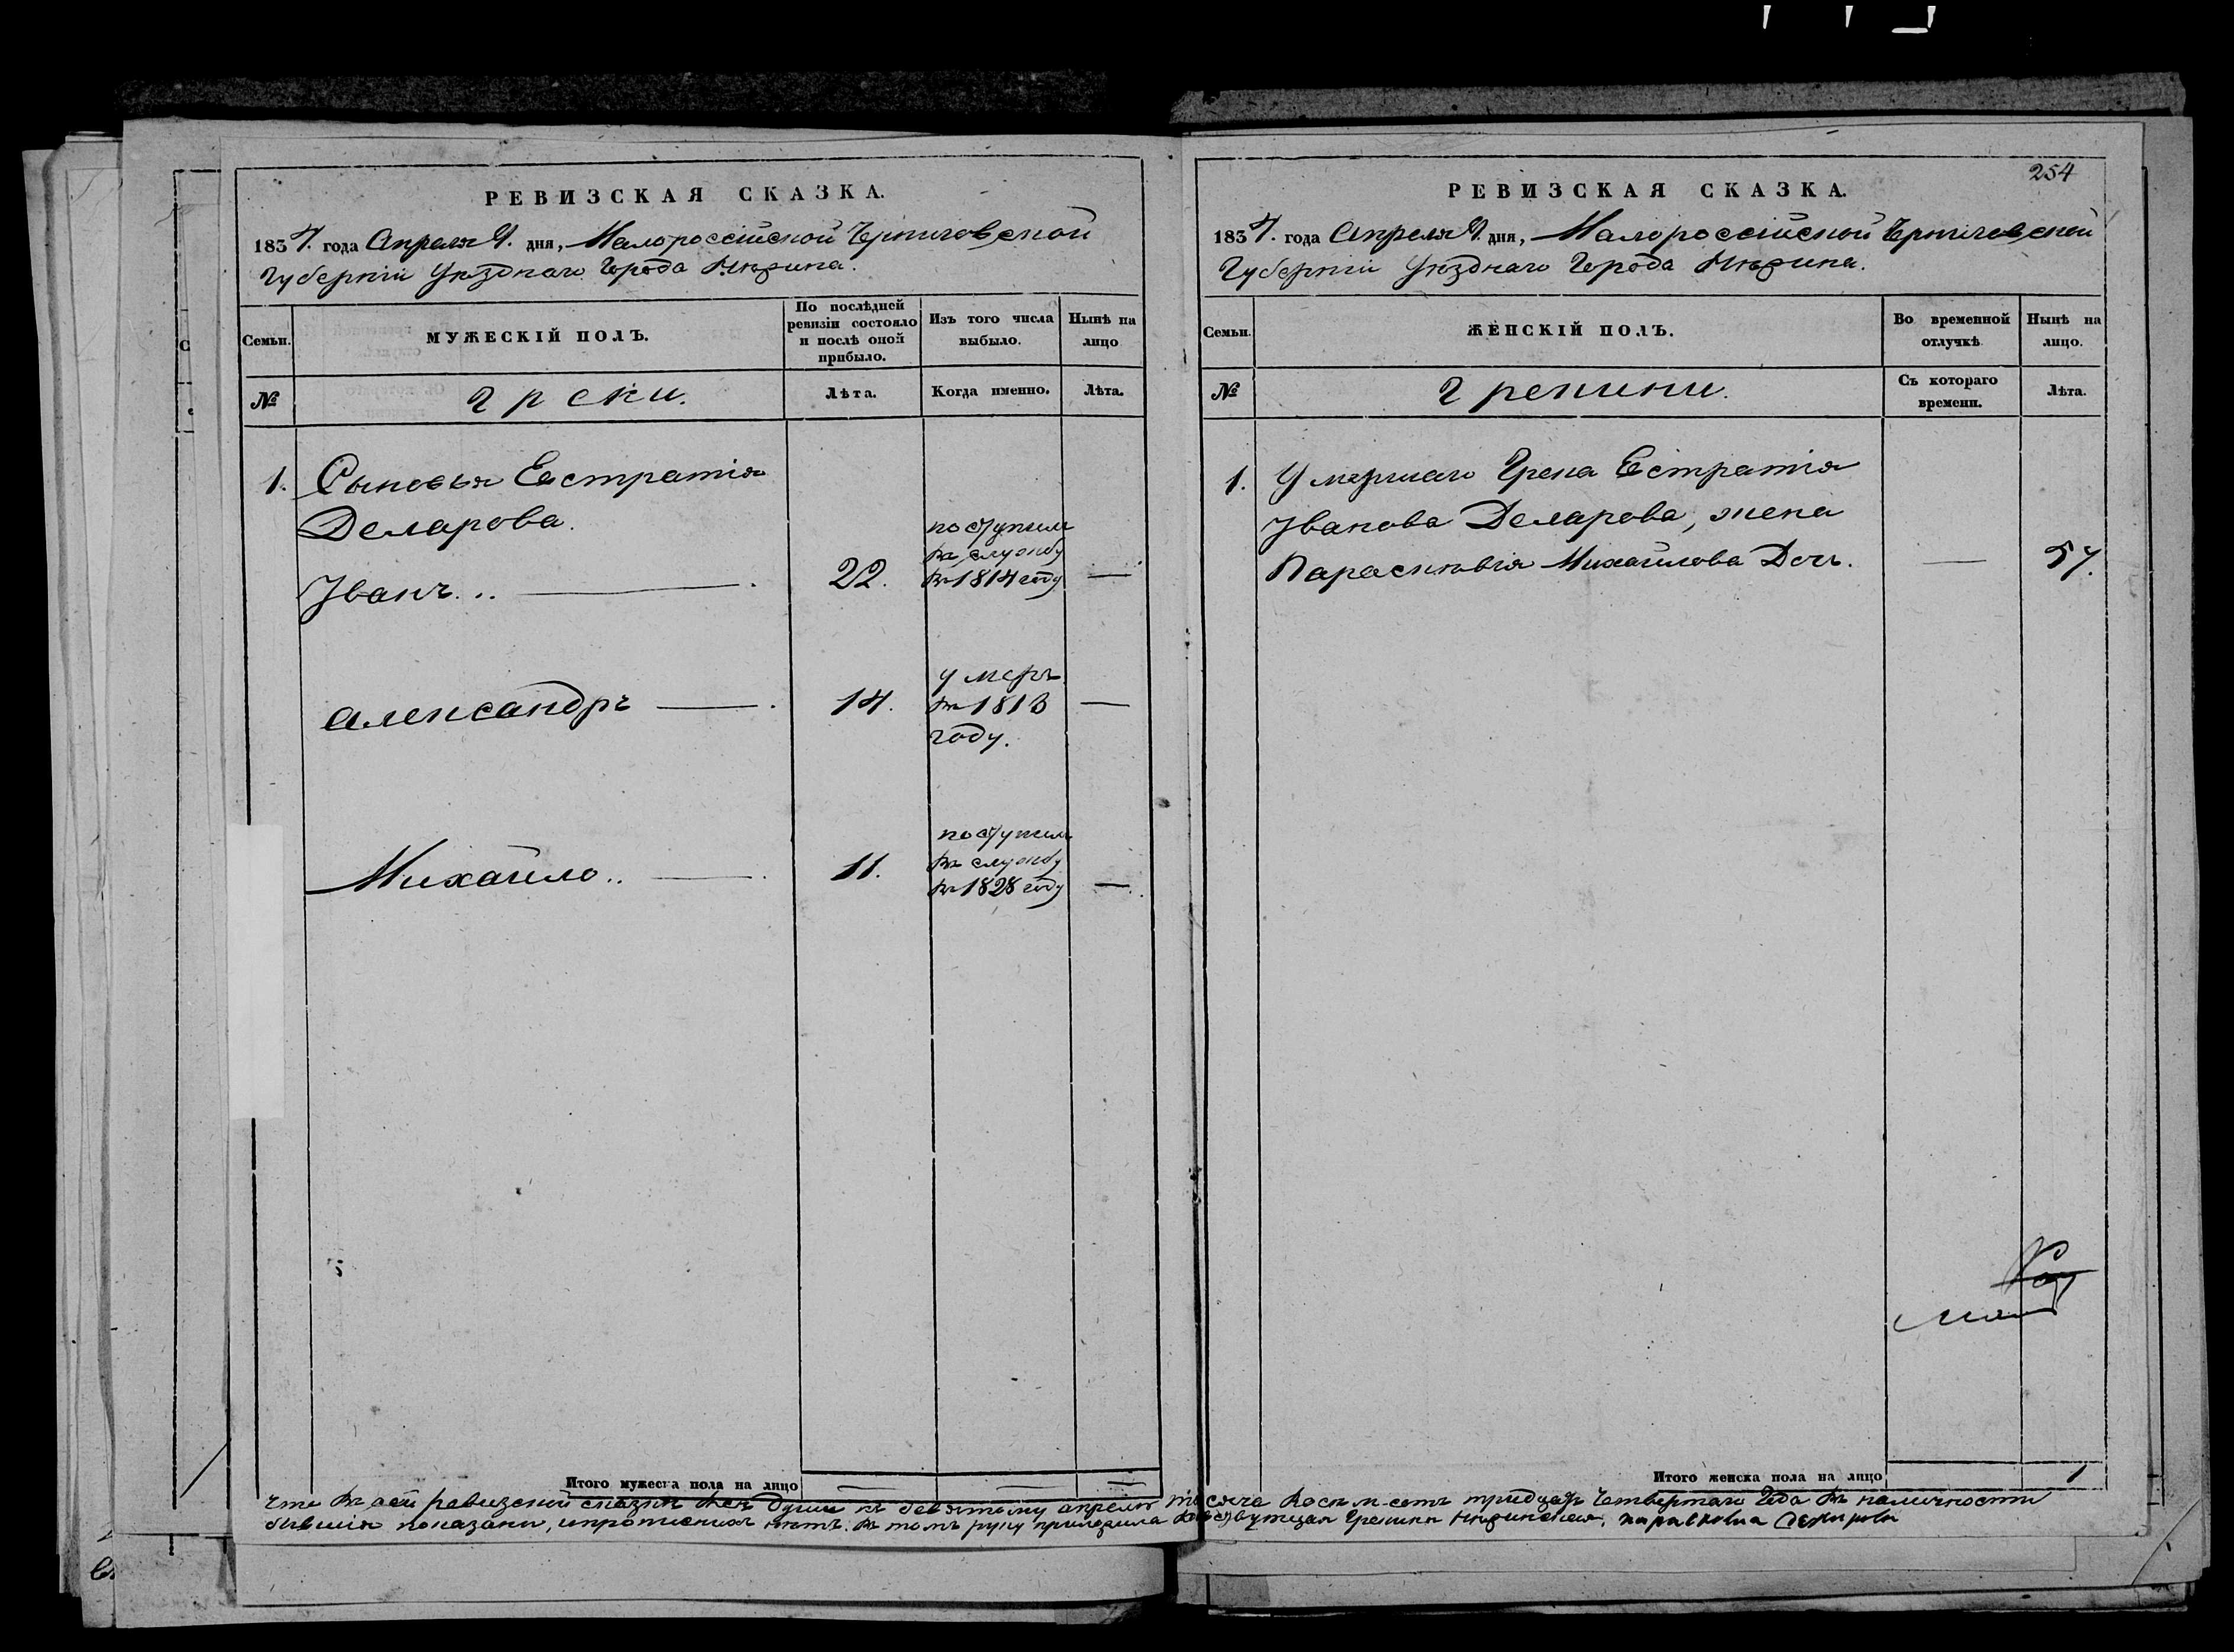 РЕВИЗСКАЯ СКАЗКА.
1834. года Апреля 9. дня, Малороссійской Черниговской
Губерніи Уѣзднаго Города Нѣжина.
Семьи.
МУЖЕСКІЙ ПОЛЪ.
По послѣдней ревизіи состояло и послѣ оной прибыло.
Изъ того числа выбыло.
Нынѣ на лицо
№
Греки.
Лѣта.
Когда именно.
Лѣта.
1. Сыновья Евстратія
Деларова.
Иванъ... — . 22. поступилъ
въ службу
въ 1814 году —
Александръ — . 14. умеръ
въ 1813
году. —
Михайло.. — . 11. поступилъ
въ службу
въ 1828 году —.
Итого мужеска пола на лицо — — —
254
РЕВИЗСКАЯ СКАЗКА.
1834. года Апреля 9. дня, Малороссійской Черниговской
Губерніи Уѣзднаго Города Нѣжина.
Семьи.
ЖЕНСКІЙ ПОЛЪ.
Во временной отлучкѣ
Нынѣ на лицо.
№
Грекини.
Съ котораго времени.
Лѣта.
1. Умершаго Грека Естратія
Иванова Деларова, жена
Параскѣвія Михайлова Дочь. — 57.
Итого женска пола на лицо 1
что въ сей ревизской сказкѣ всѣ души къ девятому апрелю тысяча восѣм-сотъ тридцать четвертаго года въ наличности
бывшія показаны, и прописныхъ нѣтъ. въ томъ руку приложила Грекиня Нѣжинская,